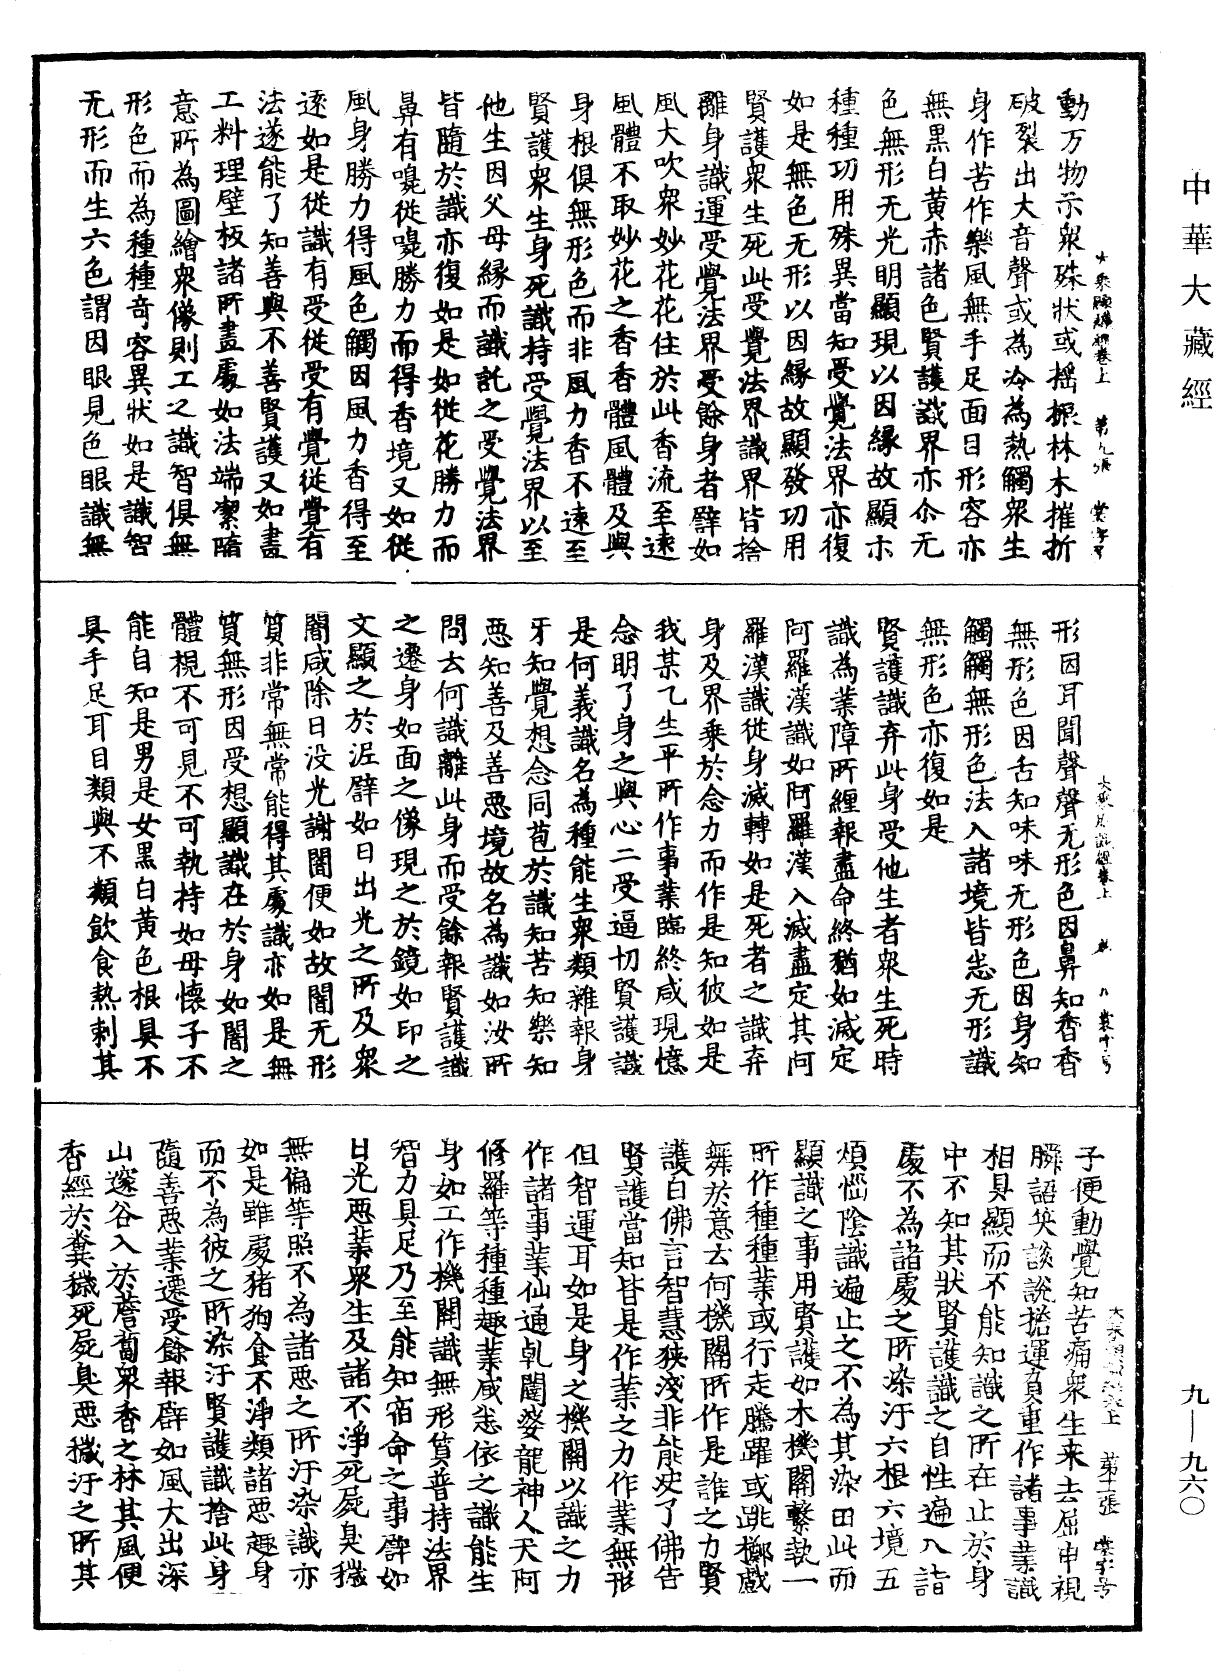 中華大藏經
動万物示衆殊狀或搖振林木摧折
破裂出大音聲或為冷為熱觸衆生
身作苦作樂風無手足面目形容亦
無黑白黄赤諸色賢護識界亦尒无
色無形无光明顯現以因縁故顯示
種種功用殊異當知受覺法界亦復
如是無色无形以因縁故顯發功用
賢護衆生死此受覺法界識界皆捨
離身識運受覺法界受餘身者譬如
風大吹衆妙花花住於此香流至遠
風體不取妙花之香香體風體及與
身根俱無形色而非風力香不遠至
賢護衆生身死識持受覺法界以至
他生因父母縁而識託之受覺法界
皆隨於識亦復如是如從花勝力而
鼻有嗅從嗅勝力而得香境又如從
風身勝力得風色觸因風力香得至
遠如是從識有受從受有覺從覺有
法遂能了知善與不善賢護又如畫
工料理壁板諸所畫處如法端潔隨
意所為圖繪衆像則工之識智俱無
形色而為種種奇容異狀如是識智
无形而生六色謂因眼見色眼識無
形因耳聞聲聲无形色因鼻知香香
無形色因舌知味味无形色因身知
觸觸無形色法入諸境皆悉无形識
無形色亦復如是
賢護識弃此身受他生者衆生死時
識為業障所纏報盡命終猶如滅定
阿羅漢識如阿羅漢入滅盡定其阿
羅漢識從身滅轉如是死者之識弃
身及界乗於念力而作是知彼如是
我某乙生平所作事業臨終咸現憶
念明了身之與心二受逼切賢護識
是何義識名為種能生衆類雜報身
牙知覺想念同苞於識知苦知樂知
惡知善及善惡境故名為識如汝所
問云何識離此身而受餘報賢護識
之遷身如面之像現之於鏡如印之
文顯之於泥譬如日出光之所及衆
闇咸除日没光謝闇便如故闇无形
質非常無常能得其處識亦如是無
質無形因受想顯識在於身如闇之
體視不可見不可執持如母懷子不
能自知是男是女黒白黄色根具不
具手足耳目類與不類飲食熱刺其
子便動覺知苦痛衆生来去屈申視
瞬語笑談說擔運負重作諸事業識
相具顯而不能知識之所在止於身
中不知其狀賢護識之自性遍入諸
處不為諸處之所染汙六根六境五
煩惱陰識遍止之不為其染由此而
顯識之事用賢護如木機關繫執一
所作種種業或行走騰躍或跳擲戲
舞於意云何機關所作是誰之力賢
護白佛言智慧狹淺非能决了佛告
賢護當知皆是作業之力作業無形
但智運耳如是身之機關以識之力
作諸事業仙通乹闥婆龍神人天阿
修羅等種種趣業咸悉依之識能生
身如工作機關識無形質普持法界
智力具足乃至能知宿命之事譬如
日光惡業衆生及諸不淨死屍臭穢
無偏等照不為諸惡之所汙染識亦
如是雖處猪狗食不淨類諸惡趣身
而不為彼之所染汙賢護識捨此身
隨善惡業遷受餘報譬如風大出深
山邃谷入於薝蔔衆香之林其風便
香經於糞穢死屍臭惡穢汙之所其
九—九六〇